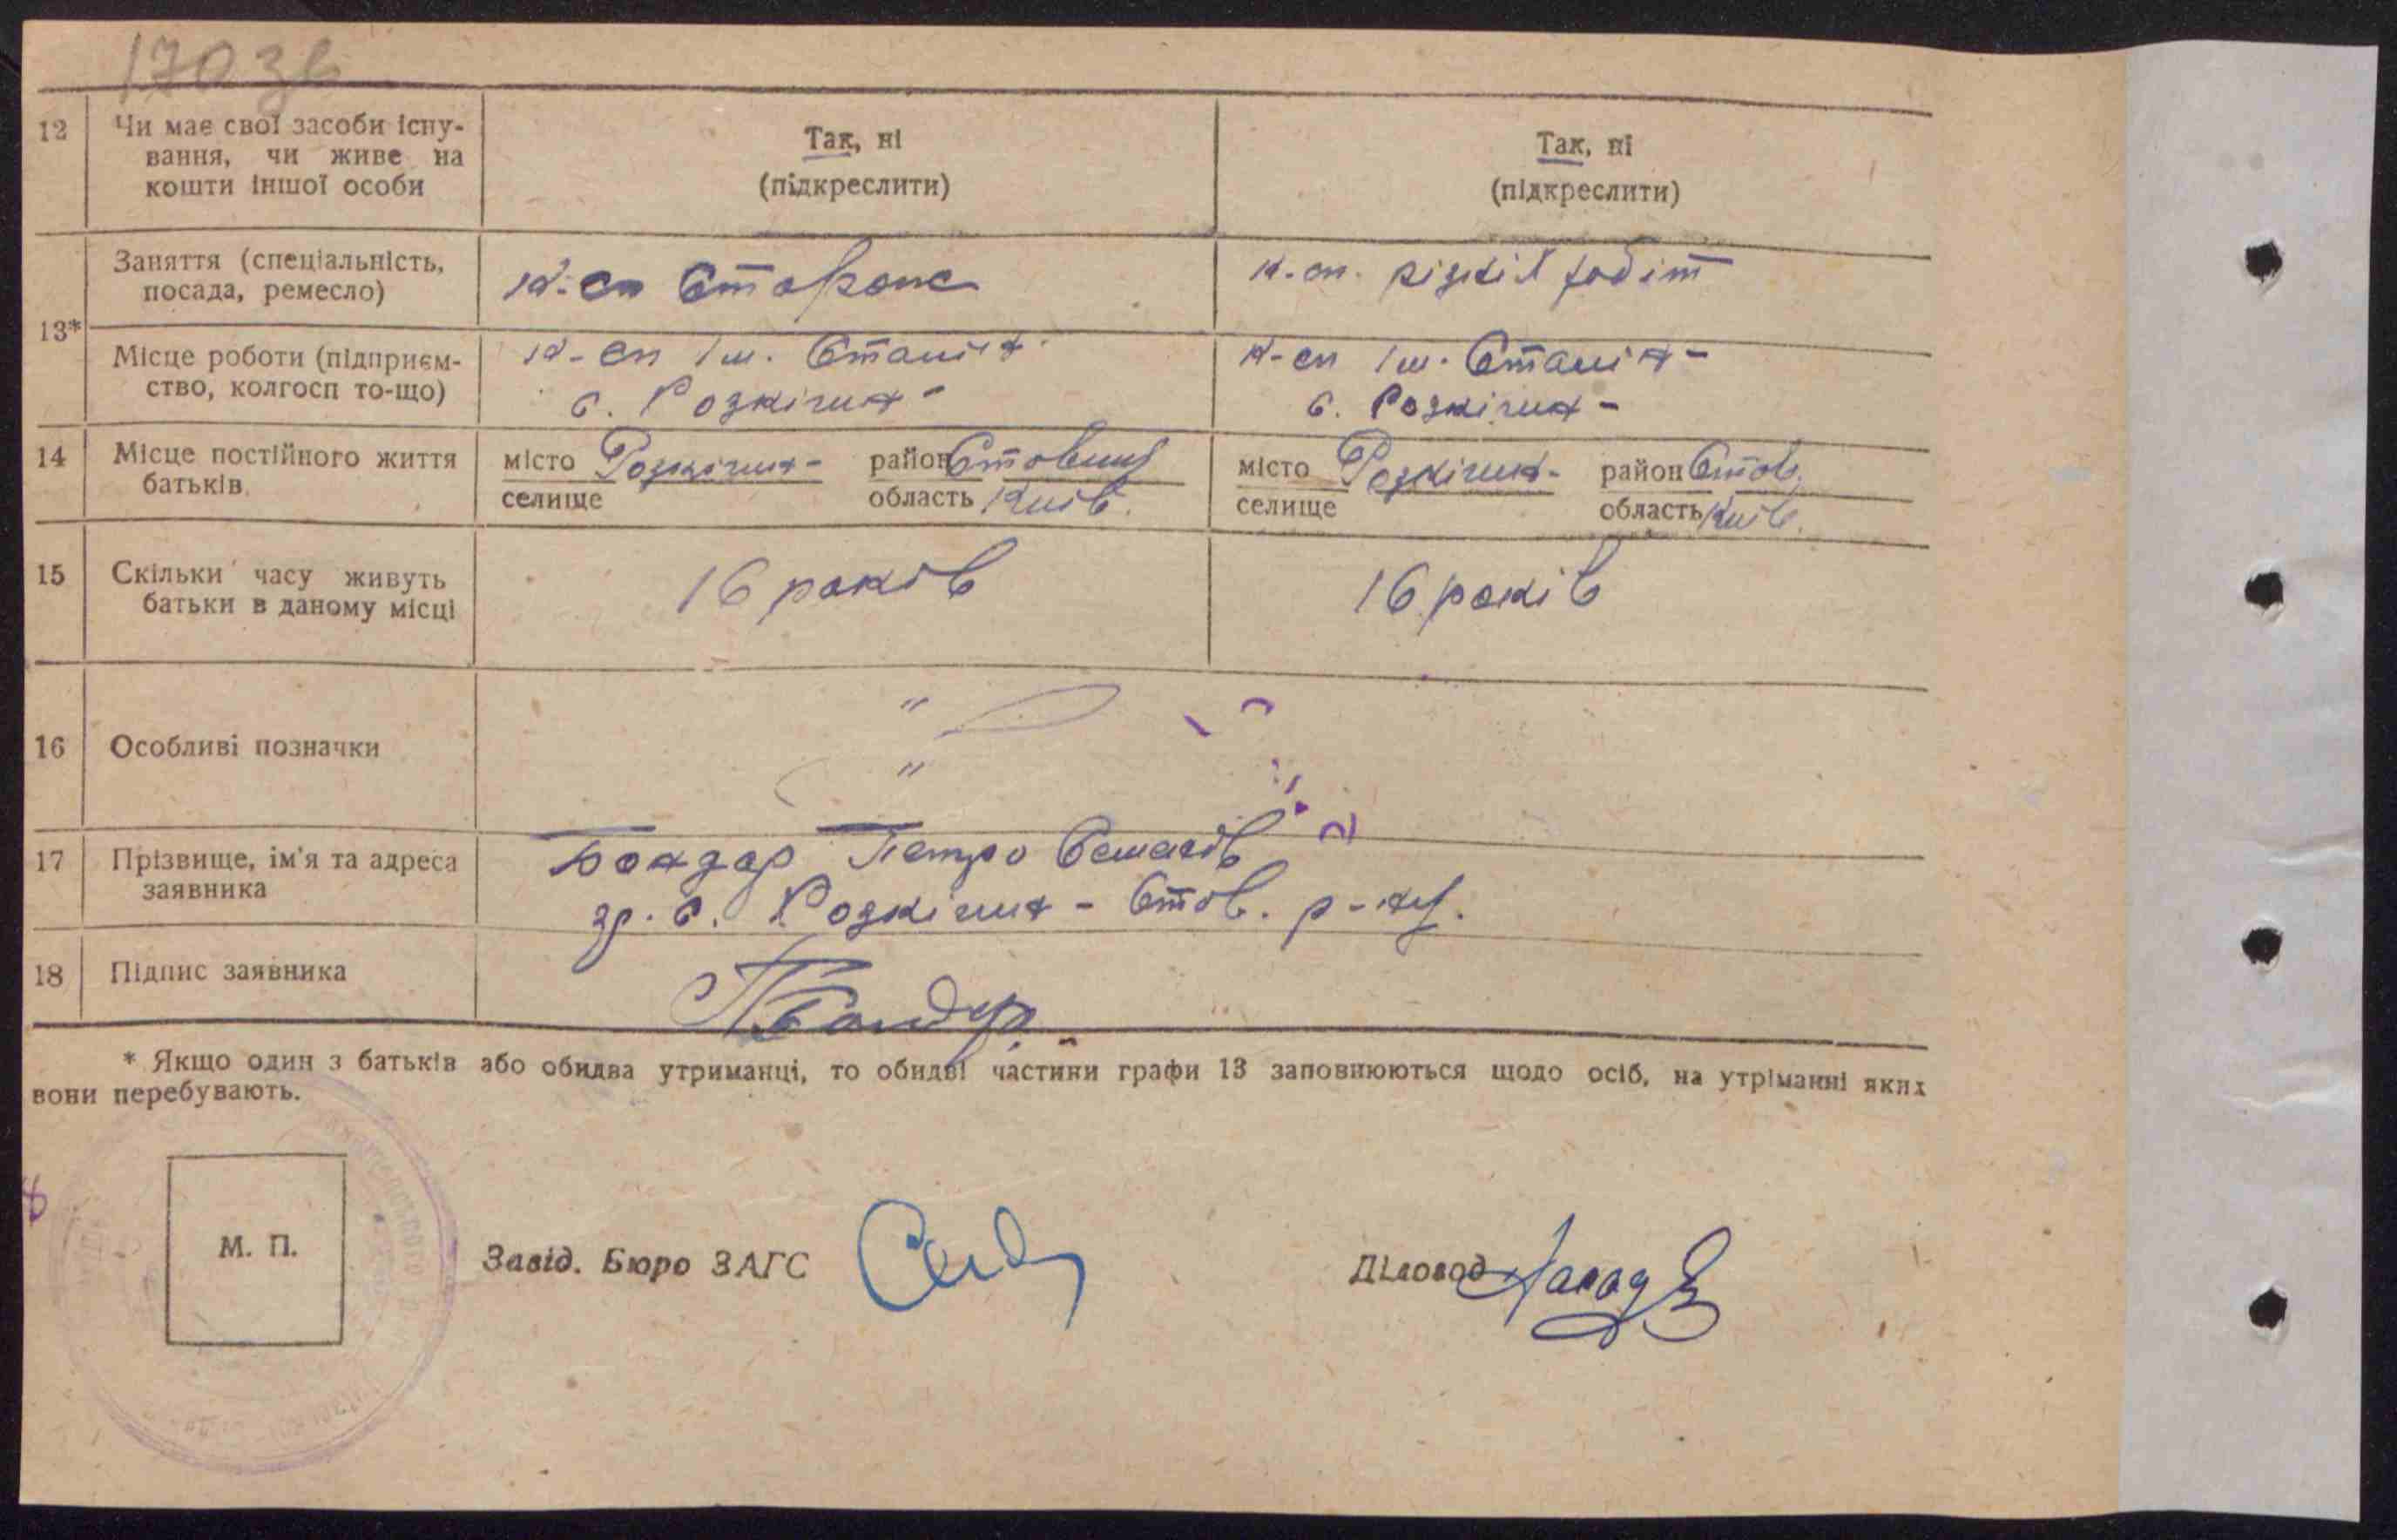 170 зв
12 Чи має свої засоби існу- Так, ні Так, ні
вання, чи живе на
кошти іншої особи (підкреслити) (підкреслити)
Заняття (спеціальність, к-сп Сторож к-сп. різних робіт
посада, ремесло)
13*
Місце роботи (підприєм- к-сп ім. Сталіна к-сп ім. Сталіна -
ство, колгосп то-що) с. Розкішна - с. Розкішна -
14 Місце постійного життя місто Розкішна - район Ставищ місто Розкішна - район Став.
батьків селище область Київ. селище область Київ.
15 Скільки часу живуть 16 років 16 років
батьки в даному місці
"
16 Особливі позначки
"
17 Прізвище, ім'я та адреса Бондар Петро
заявника гр. с. Розкішна - Став. р-ну.
18 Підпис заявника ПБондар
* Якщо один з батьків або обидва утриманці, то обидві частини графи 13 заповнюються щодо осіб, на утріманні яких
вони перебувають.
М. П.
Завід. Бюро ЗАГС Діловод